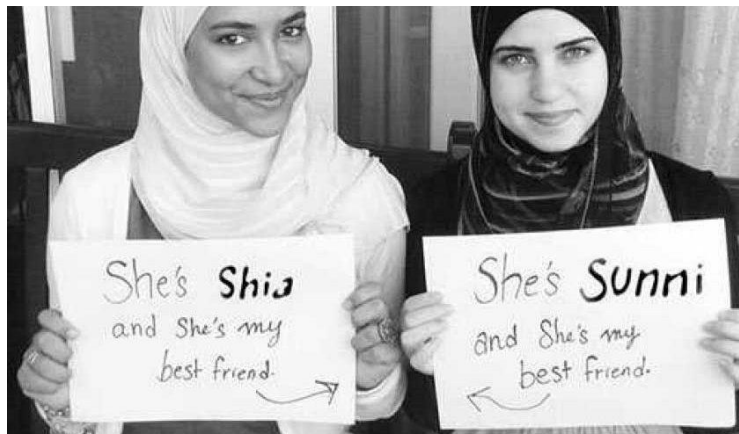 She's Shia
and She's my
best friend.
She's Sunni
and She's my
best friend.